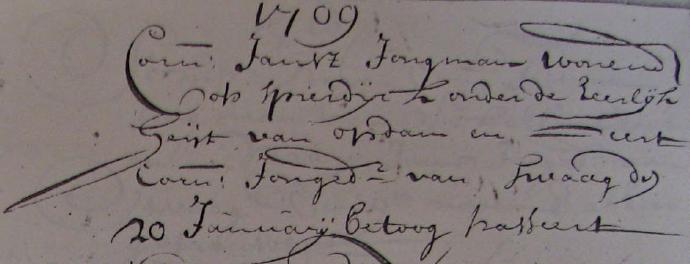 1709
Corn: Jansz Jongman wonend
op Spierdijck onder de Heerlijk
heijt van opdam en Geert
Corn: Jonged: van Swaag den
20 Januarij betoog passeert